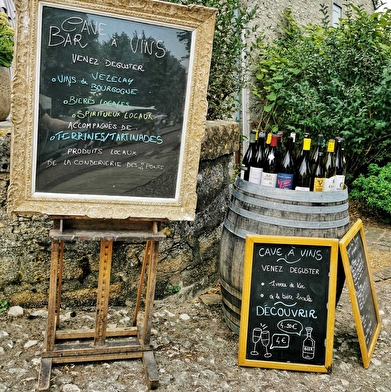 CAVE
BAR À VINS
VENEZ DEGUSTER
VINS de VEZELAY
BOURGOGNE
BIÈRES LOCALES
SPIRITUEUX LOCAUX
ACCOMPAGNÉS DE
TERRINES/TARTINADES
PRODUITS LOCAUX
DE LA CONSERVERIE DES
CAVE À VINS
VENEZ DEGUSTER
1 verre de
la bière locale
DÉCOUVRIR
4€